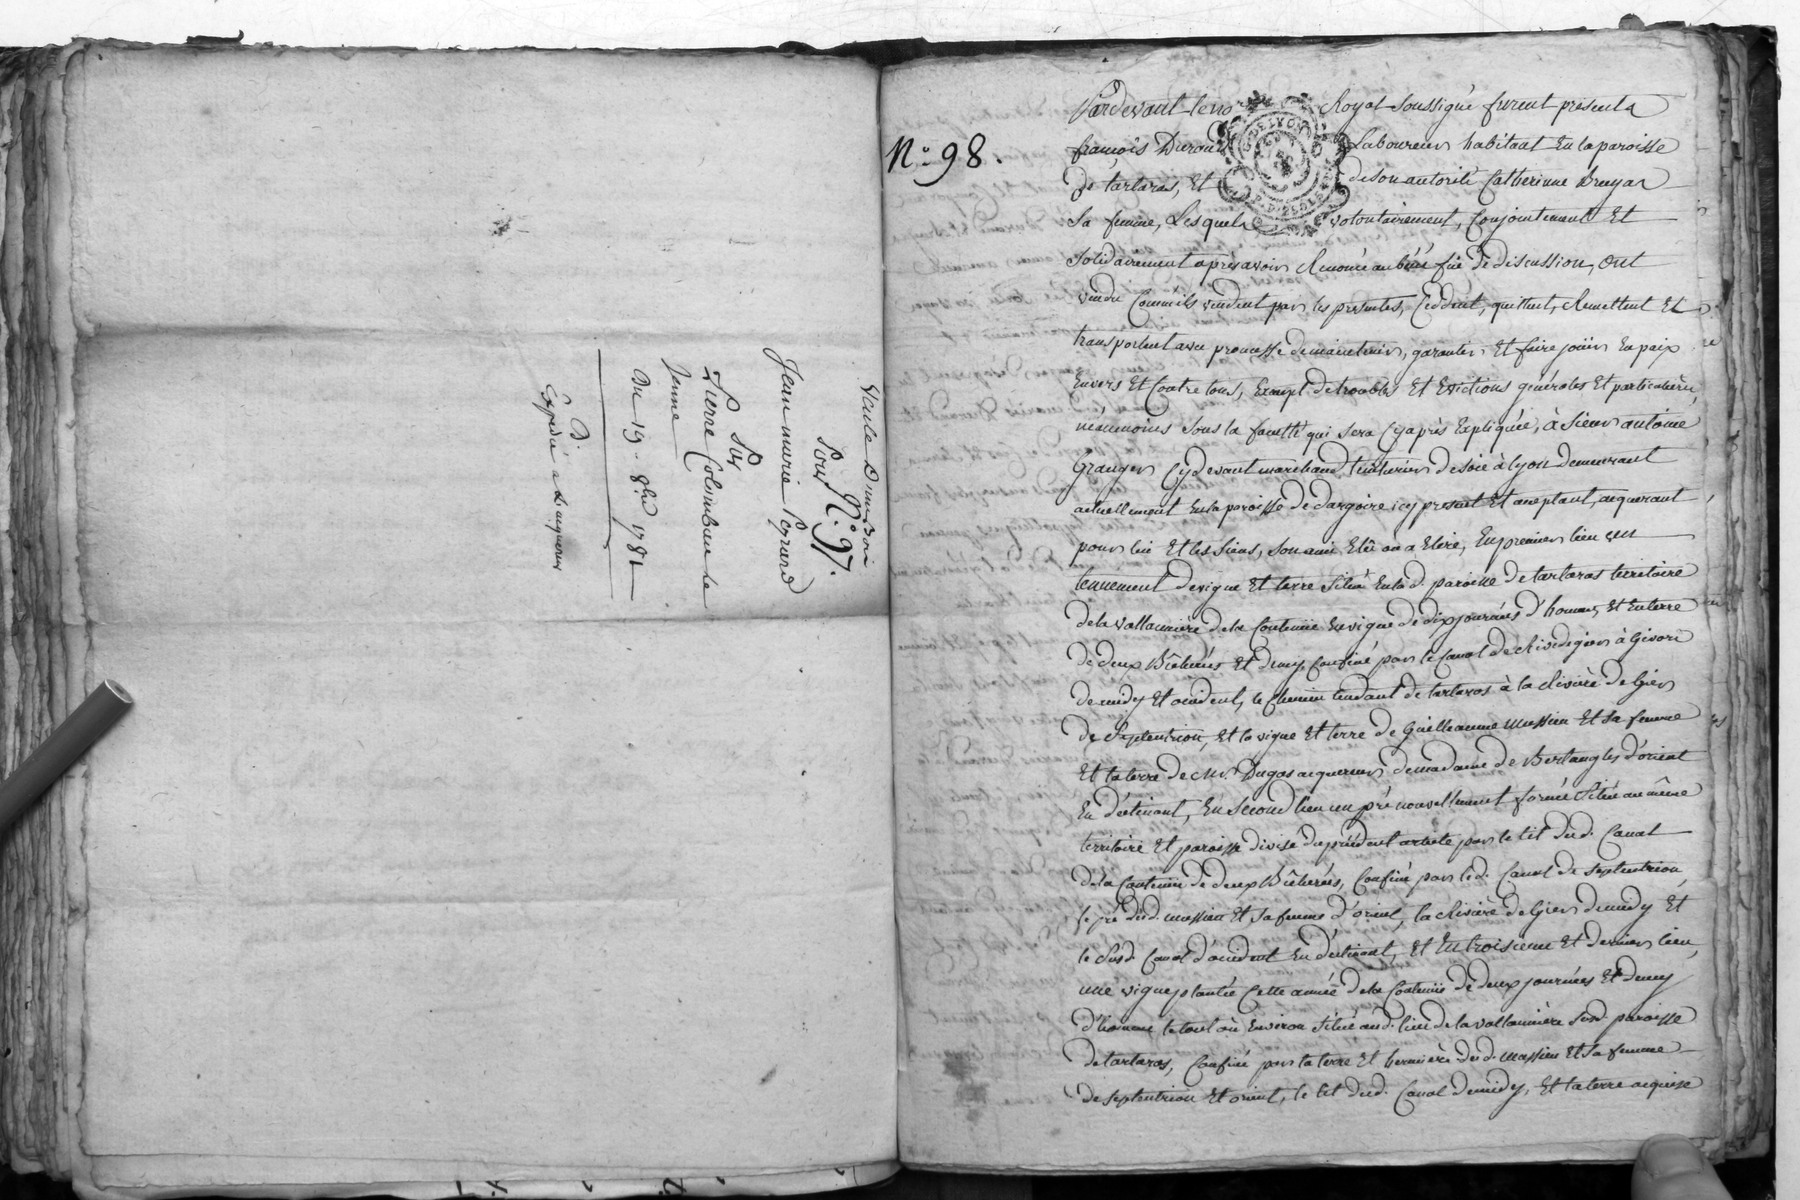 Vente d'un Bois
N.° 97.
Pour
Jean marie Peyrard
Par
Pierre Colomban le
Jeune
Du 19. 8bre 1781
D.
Expedié a l'acquereur
N.° 98.
Pardevant le no.re Royal soussigné furent présents
françois Durand Laboureur habitant en la paroisse
de tartaras, Et de son autorité Catherinne
sa femme, Lesquels volontairement, Conjointement Et
solidairement après avoir Renoncé au bénéfice de discussion, ont
vendu Comme ils vendent par les présentes, Ceddent, quittent, Remettent Et
transportent avec promesse de maintenir, garantir Et faire joüir En paix
Envers Et Contre tous, Exempt de troubles Et Evictions générales Et particulières
néanmoins sous la faculté qui sera Cyaprès Expliquée, à sieur antoine
Granger Cydevant marchand teinturier de soie à Lyon demeurant
actuellement En la paroisse de dargoire icy présent Et acceptant, acquerant
pour lui Et les siens, son amie Elû ou a Elire, En premier lieu un
tennement de vigne Et terre situé En lad. paroisse de tartaras territoire
de la vallonnière de la Contenüe En vigne de dix journées d'homme, Et En terre
de deux Bicherées Et demy, Confiné par le Canal de Rivedegier à Givors
de midy Et occident, le Chemin tendant de tartaras à la Rivière de Gier
de septentrion, Et la vigne Et terre de Guilleaume massieu Et sa femme
Et la terre de Mr. Dugas acquereur de madame de Bertangles d'orient
En déclinant, En second lieu un pré nouvellement formé situé au même
territoire Et paroisse divisé du précédent article par le lit dud. Canal
de la Contenüe de deux Bicherées, Confiné par led. Canal de septentrion,
le pré dud. massieu Et sa femme d'orient, la Rivière de Gier de midy Et
le susd. Canal d'occident En déclinant, Et En troisieme Et dernier lieu,
une vigne plantée Cette année de la Contenüe de deux journées Et demy
d'homme le tout où Environ situé aud. lieu de la vallonnière susd. paroisse
de tartaras, Confiné par la terre Et hermière dud. massieu Et sa femme
de septentrion Et orient, le lit dud. Canal de midy, Et la terre acquise